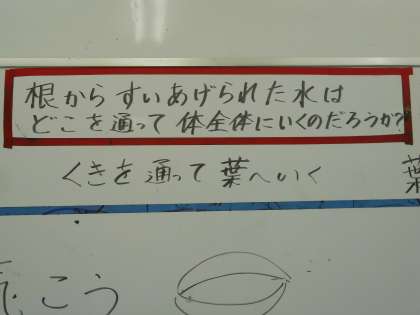 根からすいあげられた水は
どこを通って体全体にいくのだろうか?
くきを通って葉へいく
葉
こう